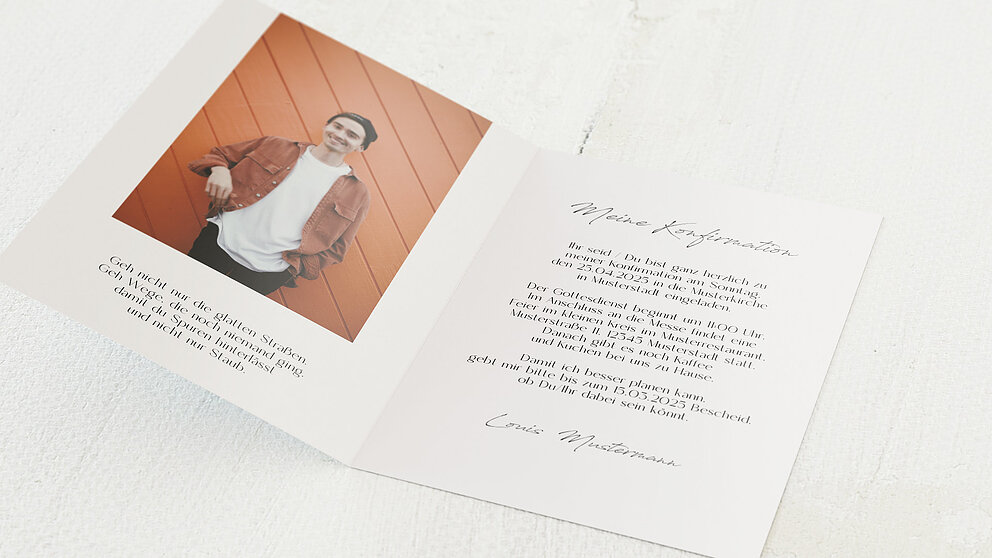 Geh nicht nur die glatten Straßen.
Geh Wege, die noch niemand ging,
damit du Spuren hinterlässt
und nicht nur Staub.
Meine Konfirmation
Ihr seid / Du bist ganz herzlich zu
meiner Konfirmation am Sonntag,
den 25.04.2025 in die Musterkirche
in Musterstadt eingeladen.
Der Gottesdienst beginnt um 11:00 Uhr.
Im Anschluss an die Messe findet eine
Feier im kleinen Kreis im Musterrestaurant,
Musterstraße 11, 12345 Musterstadt statt.
Danach gibt es noch Kaffee
und Kuchen bei uns zu Hause.
Damit ich besser planen kann,
gebt mir bitte bis zum 15.03.2025 Bescheid,
ob Du/Ihr dabei sein könnt.
Louis Mustermann